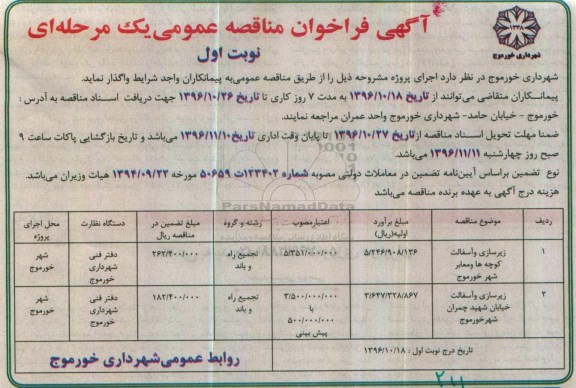 آگهی فراخوان مناقصه عمومی یک مرحله‌ای
نوبت اول
۱۳۳۸
شهرداری خورموج
شهرداری خورموج در نظر دارد اجرای پروژه مشروحه ذیل را از طریق مناقصه عمومی به پیمانکاران واجد شرایط واگذار نماید.
پیمانکاران متقاضی می‌توانند از تاریخ ۱۳۹۶/۱۰/۱۸ به مدت ۷ روز کاری تا تاریخ ۱۳۹۶/۱۰/۲۶ جهت دریافت اسناد مناقصه به آدرس :
خورموج - خیابان حامد- شهرداری خورموج واحد عمران مراجعه نمایند.
ضمنا مهلت تحویل اسناد مناقصه از تاریخ ۱۳۹۶/۱۰/۲۷ تا پایان وقت اداری تاریخ ۱۳۹۶/۱۱/۱۰ می‌باشد و تاریخ بازگشایی پاکات ساعت ۹
صبح روز چهارشنبه ۱۳۹۶/۱۱/۱۱ می‌باشد.
نوع تضمین براساس آیین‌نامه تضمین در معاملات دولتی مصوبه شماره ۱۲۳۴۰۲/ت ۵۰۶۵۹ مورخه ۱۳۹۴/۰۹/۲۲ هیات وزیران می‌باشد.
هزینه درج آگهی به عهده برنده مناقصه می‌باشد
ردیف موضوع مناقصه مبلغ برآورد اولیه(ریال) اعتبار مصوب رشته و گروه مبلغ تضمین در مناقصه ریال دستگاه نظارت محل اجرای پروژه
۱ زیرسازی وآسفالت کوچه ها ومعابر شهر خورموج ۵/۲۴۶/۹۰۸/۱۳۶ ۵/۳۵۱/۰۰۰/۰۰۰ تجمیع راه و باند ۲۶۲/۴۰۰/۰۰۰ دفتر فنی شهرداری خورموج شهر خورموج
۲ زیرسازی وآسفالت خیابان شهید چمران شهرخورموج ۳/۶۴۷/۳۲۸/۸۶۷ ۳/۵۰۰/۰۰۰/۰۰۰ با ۵۰۰/۰۰۰/۰۰۰ پیش بینی تجمیع راه و باند ۱۸۲/۴۰۰/۰۰۰ دفتر فنی شهرداری خورموج شهر خورموج
تاریخ درج نوبت اول : ۱۳۹۶/۱۰/۱۸
روابط عمومی شهرداری خورموج
۲۱۱
ParsNamadData